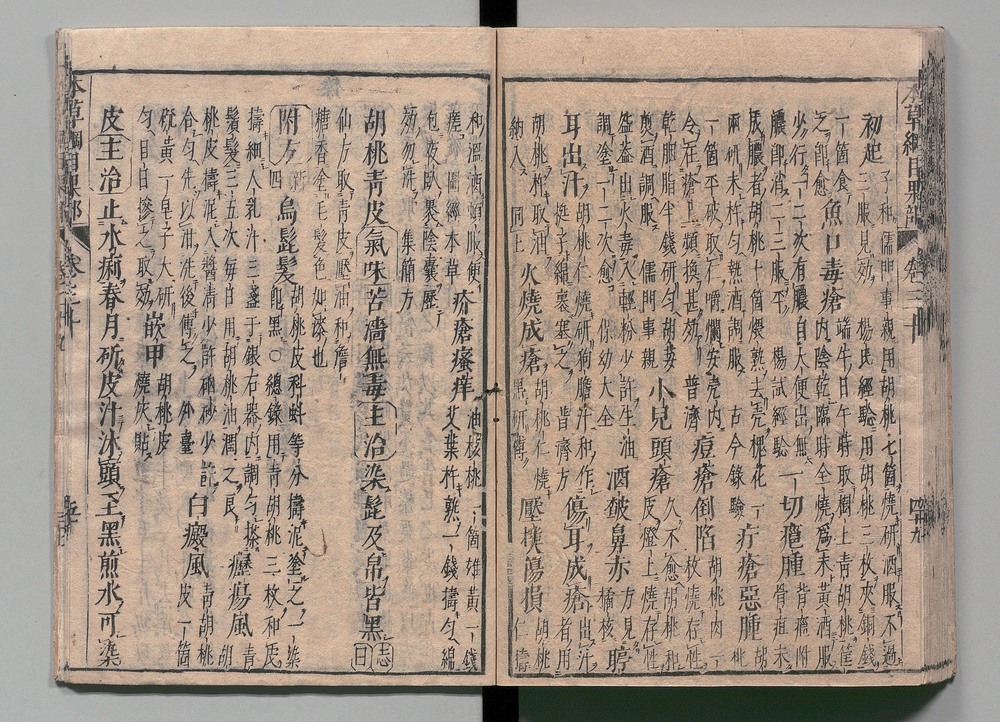 初起子和儒門事親用胡桃七箇燒研酒服不過三服見效楊氏經驗用胡桃三枚夾銅錢
一箇食之即愈魚口毒瘡端午日午時取樹上青胡桃筐內陰乾臨時全燒爲末黃酒服
少行一二次有膿自大便出無膿即消二三服平楊試經驗一切癰腫背癰附骨疽未
成膿者胡桃十箇煨熟去壳槐花一兩研末杵勻熱酒調服古今錄驗疔瘡惡腫胡桃
一箇平破取仁嚼爛安壳內合在瘡上頻換甚效普濟痘瘡倒陷胡桃肉一枚燒存性
胭脂半錢研勻胡荽煎酒調服儒門事親小兒頭瘡久不愈胡桃和皮燈上燒存性
盌蓋出火毒入輕粉少許生油調塗一二次愈保幼大全酒皶鼻赤方見橘核聤
耳出汁胡桃仁燒研狗膽汁和作挺子綿裹塞之普濟方傷耳成瘡出汁者用
胡桃杵取油納入同上火燒成瘡胡桃仁燒黑研傅壓撲傷損胡桃仁擣
和溫酒頓服便瘥圖經本草疥瘡瘙痒油核桃一箇雄黃一錢艾葉杵熟一錢擣勻綿
包夜臥裹陰囊歷效勿洗集簡方
胡桃青皮氣味苦濇無毒主治染髭及帛皆黑志曰
仙方取青皮壓油和詹糖香塗毛髮色如漆也
附方新四烏髭髮胡桃皮科蚪等分擣泥塗之一染即黑○總錄用青胡桃三枚和皮
擣細入乳汁三盞于銀石器內調勻搽鬚髮三五次每日用胡桃油潤之良癧瘍風青胡
桃皮擣泥入醬清少許硇砂少許合勻先以泔洗後傅之外臺白癜風青胡桃皮一箇
硫黃一皂子大研勻日日摻之取效嵌甲胡桃皮燒灰貼
皮主治止水痢春月斫皮汁沐頭至黑煎水可染